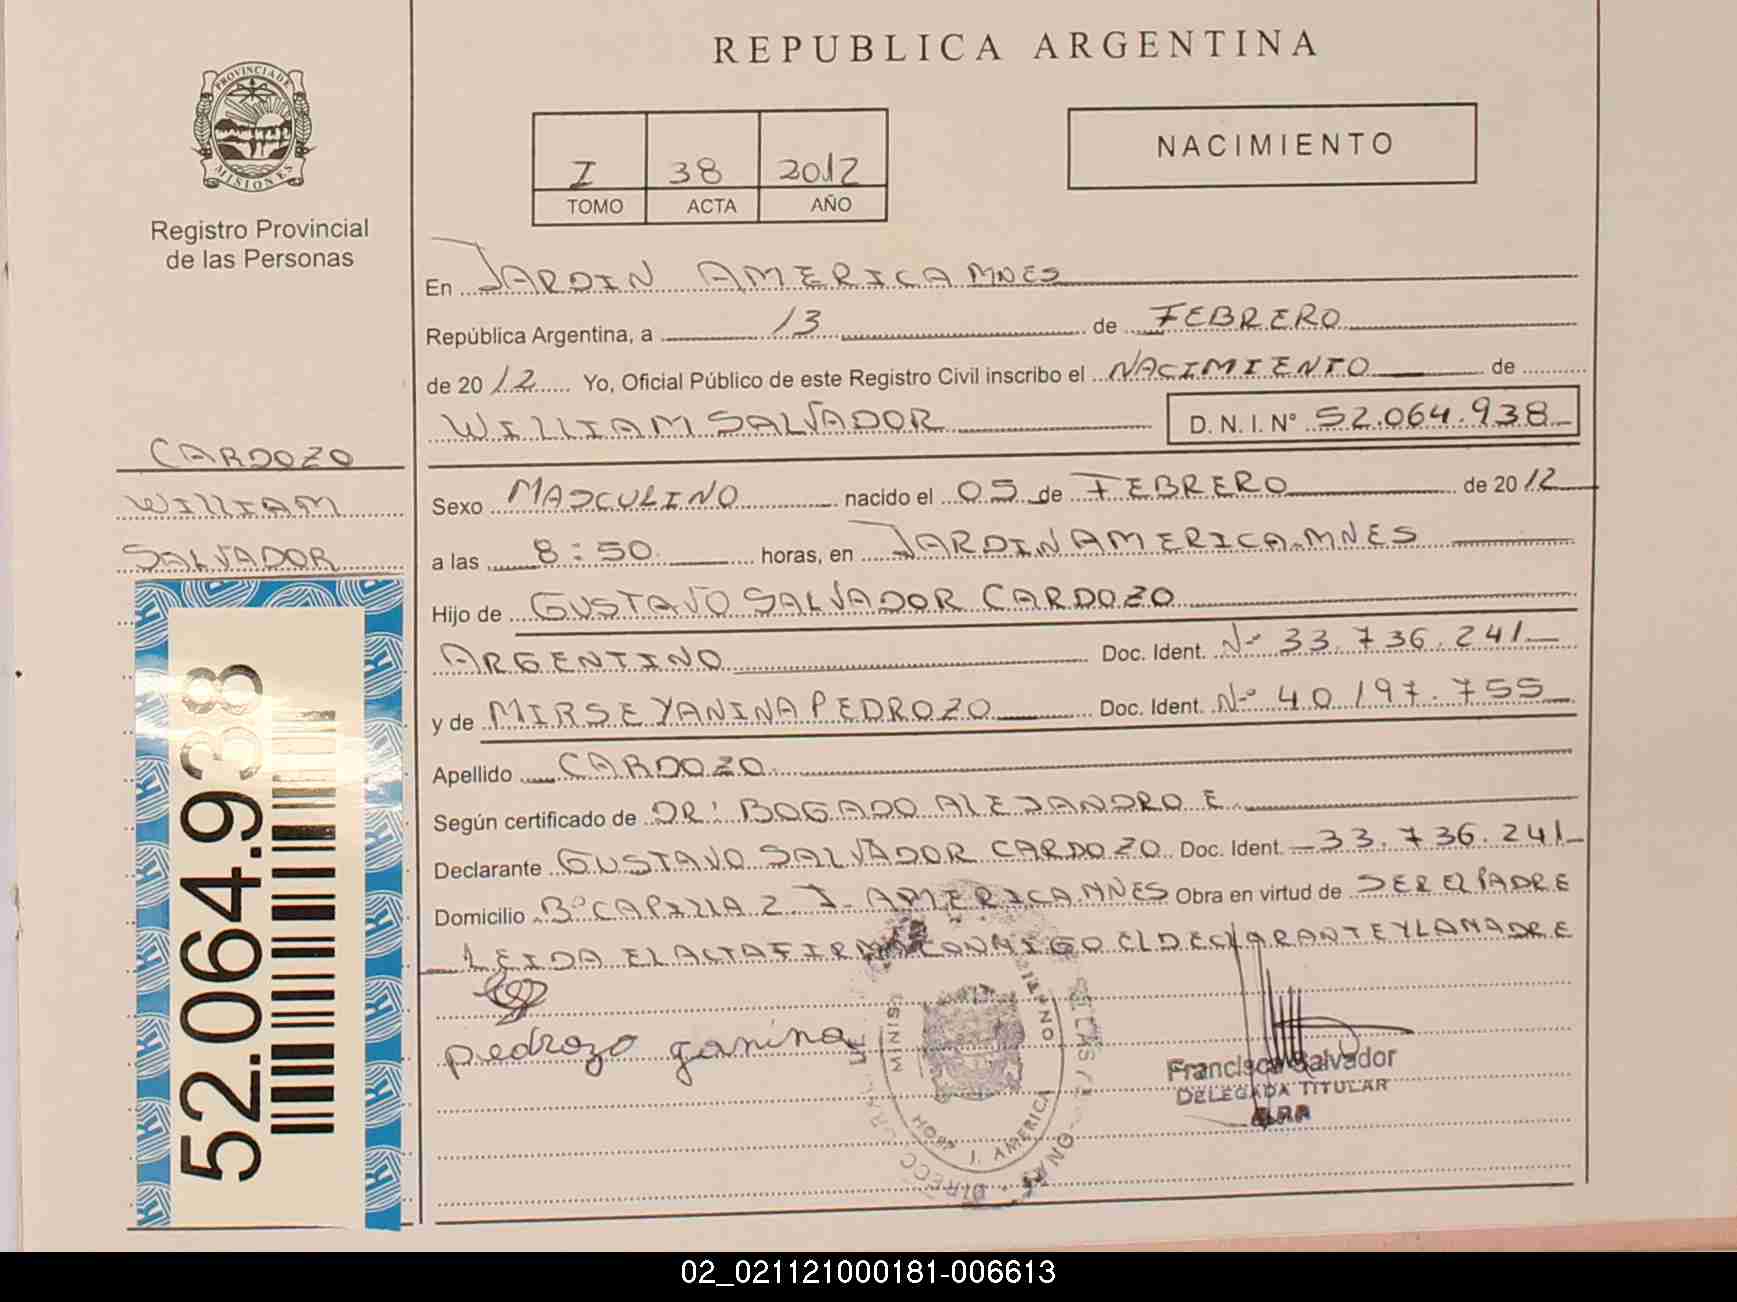 REPUBLICA ARGENTINA
PROVINCIA DE MISIONES
Registro Provincial
de las Personas
I 38 2012
TOMO ACTA AÑO
NACIMIENTO
En JARDIN AMERICA MNES
República Argentina, a 13 de FEBRERO
de 2012 Yo, Oficial Público de este Registro Civil inscribo el NACIMIENTO de
WILLIAM SALVADOR D. N. I. Nº 52.064.938
CARDOZO
WILLIAM
SALVADOR
Sexo MASCULINO nacido el 05 de FEBRERO de 2012
a las 8:50 horas, en JARDIN AMERICA.MNES
Hijo de GUSTAVO SALVADOR CARDOZO
ARGENTINO Doc. Ident. Nº 33.736.241
y de MIRSE YANINA PEDROZO Doc. Ident. Nº 40.197.755
Apellido CARDOZO
Según certificado de DR: BOGADO ALEJANDRO E
Declarante GUSTAVO SALVADOR CARDOZO Doc. Ident. 33.736.241
Domicilio Bº CAPILLA 2 J. AMERICA.MNES Obra en virtud de SER EL PADRE
LEIDA EL ACTA FIRMA CONMIGO EL DECLARANTE Y LA MADRE
pedrozo yanina
J. AMERICA
Francisca Salvador
DELEGADA TITULAR
52.064.938
02_021121000181-006613